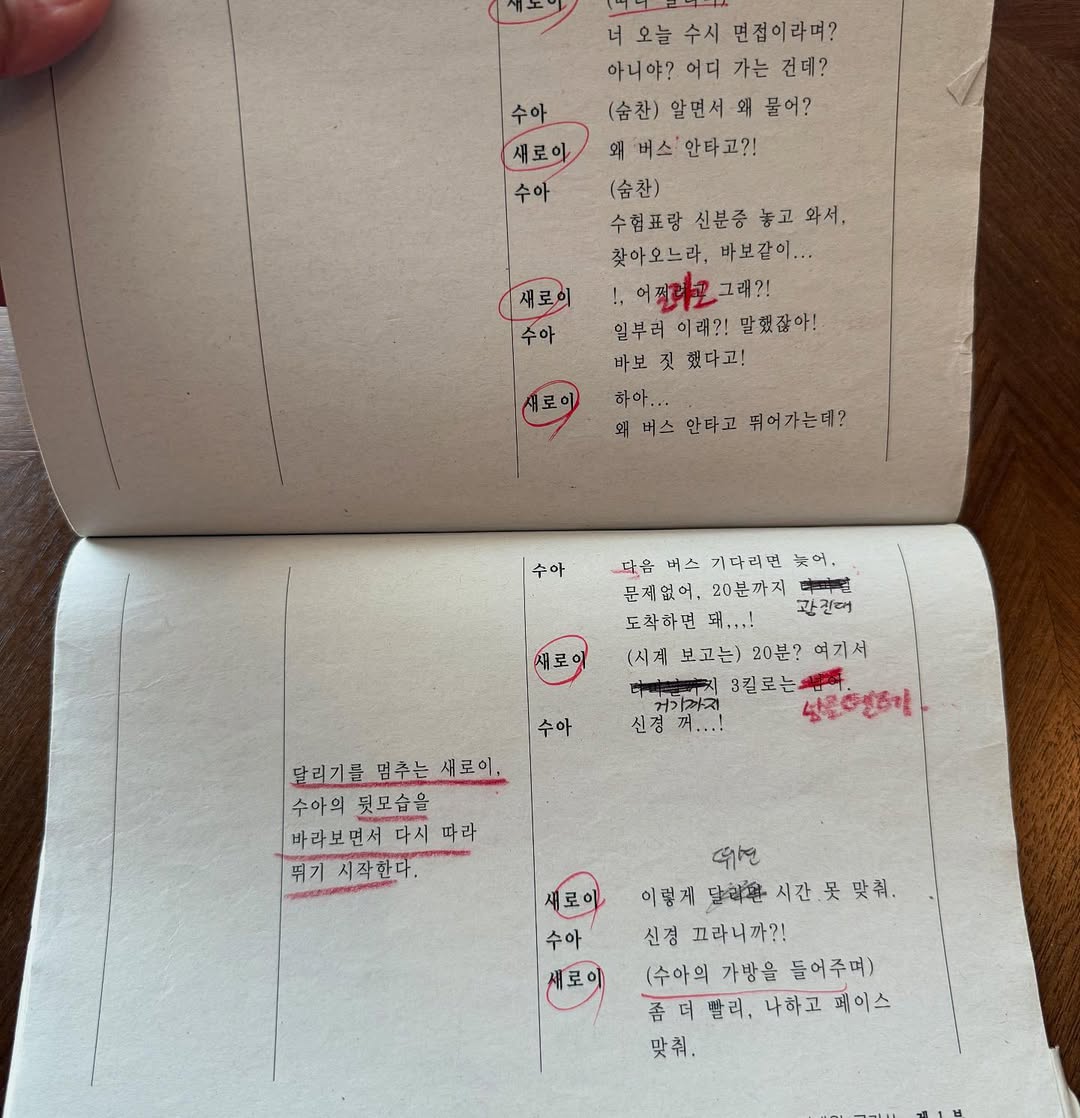 새로이
너 오늘 수시 면접이라며?
아니야? 어디 가는 건데?
수아 (숨찬) 알면서 왜 물어?
새로이 왜 버스 안타고?!
수아 (숨찬)
수험표랑 신분증 놓고 와서,
찾아오느라, 바보같이...
새로이 !, 어쩌려고 그래?!
라고
수아 일부러 이래?! 말했잖아!
바보 짓 했다고!
새로이 하아...
왜 버스 안타고 뛰어가는데?
수아 다음 버스 기다리면 늦어.
문제없어, 20분까지
광진대
도착하면 돼,,,!
새로이 (시계 보고는) 20분? 여기서
지 3킬로는
거기까지
수아 신경 꺼...!
달리기를 멈추는 새로이,
수아의 뒷모습을
바라보면서 다시 따라
뛰기 시작한다.
뛰면
새로이 이렇게 달리면 시간 못 맞춰.
수아 신경 끄라니까?!
새로이 (수아의 가방을 들어주며)
좀 더 빨리, 나하고 페이스
맞춰.